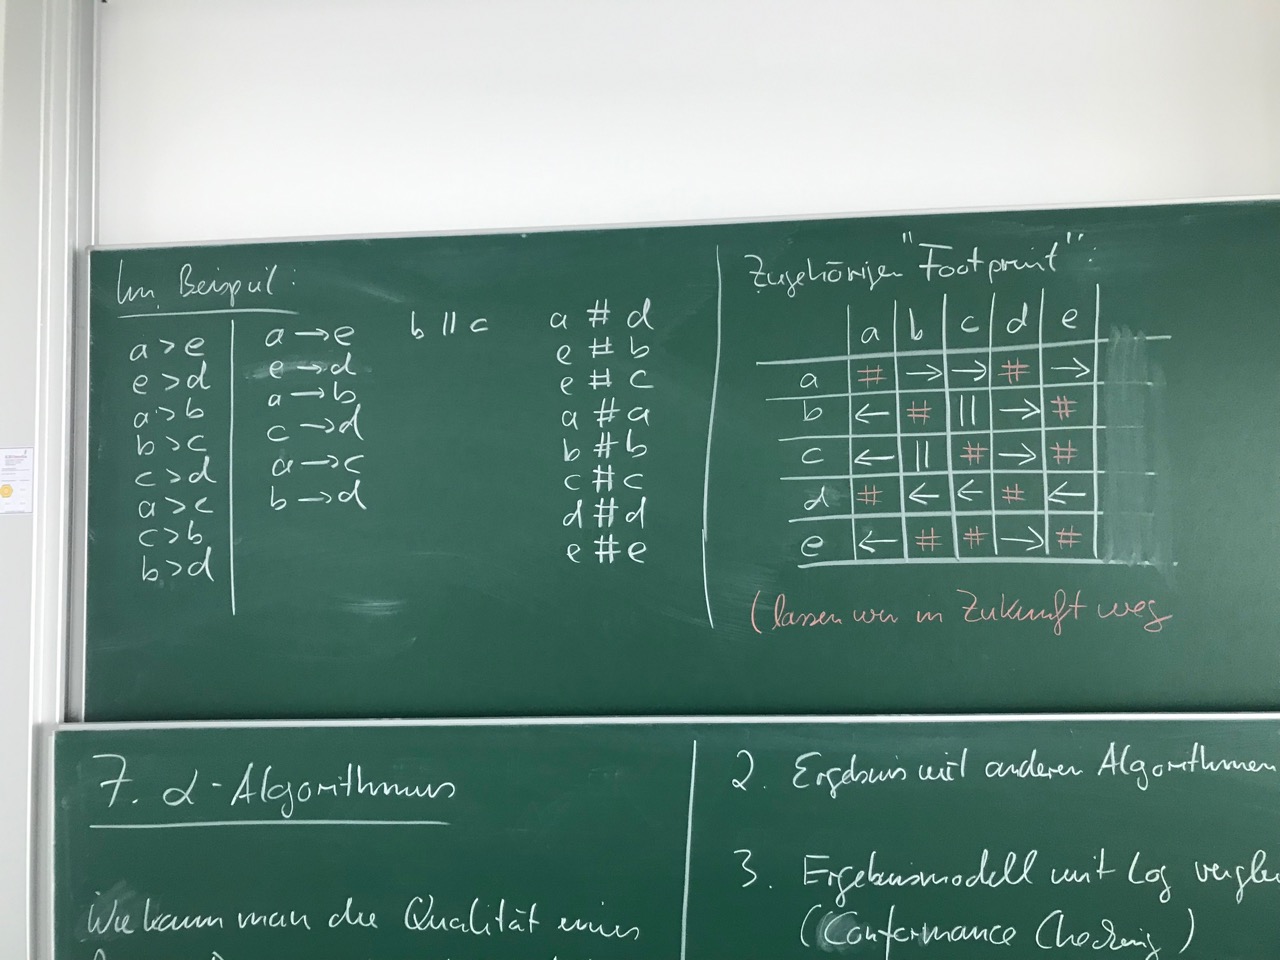 Im Beispiel:
a > e
e > d
a > b
b > c
c > d
a > c
c > b
b > d
a → e
e → d
a → b
c → d
a → c
b → d
b || c
a # d
e # b
e # c
a # a
b # b
c # c
d # d
e # e
Zugehöriger "Footprint":
a b c d e
a # → → # →
b ← # || → #
c ← || # → #
d # ← ← # ←
e ← # # → #
(lassen wir in Zukunft weg
7. α-Algorithmus
Wie kann man die Qualität eines
2. Ergebnis mit anderen Algorithmen
3. Ergebnismodell mit Log
(Conformance Checking)